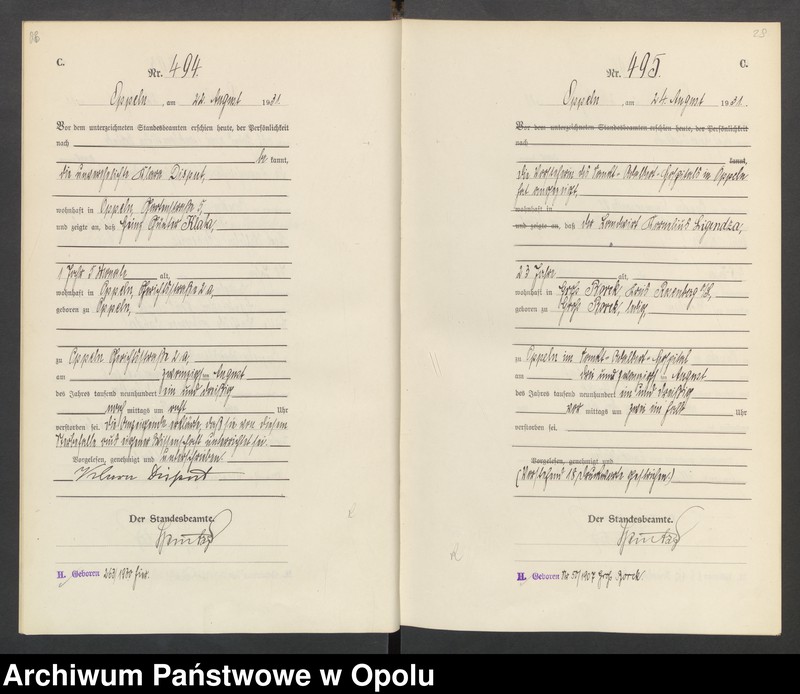 C.
Nr. 494.
Oppeln, am 22. August 1931.
Vor dem unterzeichneten Standesbeamten erschien heute, der Persönlichkeit
nach
be kannt,
die unverehelichte Klara Dispont,
wohnhaft in Oppeln, Gartenstraße 5,
und zeigte an, daß Heinz Günter Klata,
1 Jahr 5 Monate alt,
wohnhaft in Oppeln, Gerichtsstraße 2a,
geboren zu Oppeln,
zu Oppeln Gerichtsstraße 2a,
am zwanzigsten August
des Jahres tausend neunhundert ein und dreißig
nach mittags um acht Uhr
verstorben sei. Die Anzeigende erklärte, daß sie von diesem
Sterbefalle aus eigener Wissenschaft unterrichtet sei.
Vorgelesen, genehmigt und unterschrieben.
Der Standesbeamte.
H. Geboren 263/1930 hier.
23
C.
Nr. 495.
Oppeln, am 24. August 1931.
Vor dem unterzeichneten Standesbeamten erschien heute, der Persönlichkeit
nach
kannt,
Die Vorsteherin des Sankt-Adalbert-Hospitals in Oppeln
hat angezeigt,
wohnhaft in
und zeigte an, daß der Landwirt Kornelius Ligendza,
23 Jahre alt,
wohnhaft in Groß Borek, Kreis Rosenberg O/S,
geboren zu Groß Borek, ledig,
zu Oppeln im Sankt-Adalbert-Hospital
am drei und zwanzigsten August
des Jahres tausend neunhundert ein und dreißig
vor mittags um zwei ein halb Uhr
verstorben sei.
Vorgelesen, genehmigt und
(Vorstehend 18 Druckworte gestrichen.)
Der Standesbeamte.
H. Geboren Nr 50/1907 Groß Borek
Archiwum Państwowe w Opolu